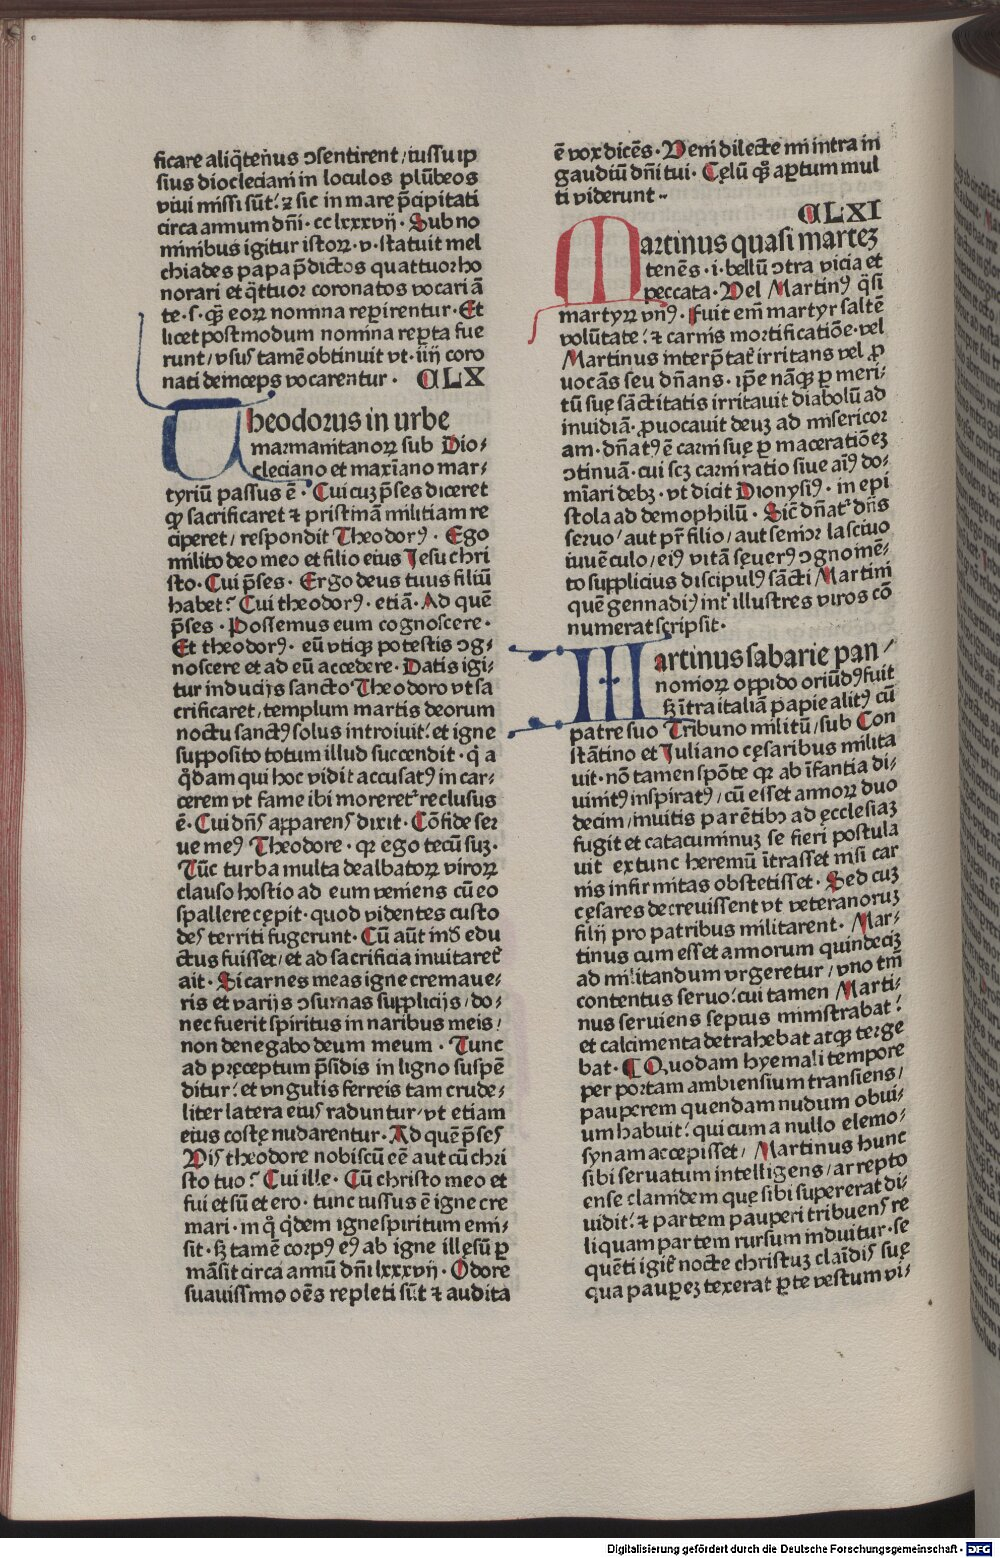 ficare aliq̄ten̄us ↄsentirent / iussu ip
sius diocleciani in loculos plūbeos
viui missi sūt: ⁊ sic in mare p̄cipitati
circa annum dn̄i · cclxxxvij · Sub no
minibus igitur istoꝝ · v · statuit mel
chiades papa p̄dictos quattuor ho
norari et q̄ttuor coronatos vocari ā
te · s · qꝫ eoꝝ nomina reꝑirentur · Et
licet postmodum nomina reꝑta fue
runt / vsus tamē obtinuit vt · iiij coro
nati deinceps vocarentur · CLX
Theodorus in urbe
marmanitanoꝝ sub Dio⸗
cleciano et maxīano mar⸗
tyriū passus ē · Cui cuꝫ p̄ses diceret
qꝫ sacrificaret ⁊ pristinā militiam re
ciperet / respondit Theodorꝰ · Ego
milito deo meo et filio eius Jesu chri
sto · Cui p̄ses · Ergo deus tuus filiū
habet? Cui theodorꝰ · etiā · Ad quē
p̄ses · Possemus eum cognoscere ·
Et theodorꝰ · eū vtiqꝫ potestis ↄg⸗
noscere et ad eū accedere · Datis igi⸗
tur inducijs sancto Theodoro vt sa
crificaret / templum martis deorum
noctu sanctꝰ solus introiuit: et igne
supposito totum illud succendit · q̄ a
q̄dam qui hoc vidit accusatꝰ in car⸗
cerem vt fame ibi moreret᷑ reclusus
ē · Cui dn̄s apparens dixit · Cōfide ser
ue meꝰ Theodore · qꝛ ego tecū suꝫ ·
Tūc turba multa dealbatoꝝ viroꝝ
clauso hostio ad eum veniens cū eo
spallere cępit · quod videntes custo
des territi fugerunt · Cū aūt inđ edu
ctus fuisset / et ad sacrificia inuitaret᷑
ait · Si carnes meas igne cremaue⸗
ris et varijs ↄsumas supplicijs / do⸗
nec fuerit spiritus in naribus meis /
non denegabo deum meum · Tunc
ad pręceptum p̄sidis in ligno suspē
ditur: et vngulis ferreis tam crude⸗
liter latera eius raduntur / vt etiam
eius costę nudarentur · Ad quē p̄ses
Vis theodore nobiscū eē aut cū chri
sto tuo? Cui ille · Cū christo meo et
fui et sū et ero · tunc iussus ē igne cre
mari · in q̊ q̄dem igne spiritum emi⸗
sit · sꝫ tamē corpꝰ eꝰ ab igne illęsū ꝑ
māsit circa annū dn̄i lxxxvij · Odore
suauissimo oēs repleti sūt ⁊ audita
ē vox dicēs · Veni dilecte mi intra in
gaudiū dn̄i tui · Celū qꝫ aꝑtum mul
ti viderunt ··
CLXI
Martinus quasi marteꝫ
tenēs · i · bellū ↄtra vicia et
peccata · Vel Martinꝰ q̄si
martyꝝ vnꝰ · Fuit em̄ martyr saltē
volūtate: ⁊ carnis mortificatiōe · vel
Martinus interp̄tat᷑ irritans vel ꝓ
uocās seu dn̄ans · ip̄e nāqꝫ ꝑ meri⸗
tū suę sāctitatis irritauit diabolū ad
inuidiā · ꝓuocauit deuꝫ ad misericor
am · dn̄atꝰ ē carni suę ꝑ maceratiōeꝫ
ↄtinuā · cui scꝫ carni ratio siue aīꝰ do⸗
mīari debꝫ · vt dicit Dionysiꝰ · in epi
stola ad demophilū · Sic̄ dn̄at᷑ dn̄s
seruo / aut pr̄ filio / aut senior lasciuo
iuuēculo / eiꝰ vitā seuerꝰ ↄgnomē⸗
to supplicius discipulꝰ sācti Martini
quē gennadiꝰ int᷑ illustres viros cō
numerat scripsit ·
Martinus sabarie pan /
nonioꝝ oppido oriūdꝰ fuit
sꝫ ītra italiā papie alitꝰ cū
patre suo Tribuno militū / sub Con
stātino et Juliano cęsaribus milita
uit · nō tamen spōte qꝛ ab īfantia di⸗
uinitꝰ inspiratꝰ / cū esset annoꝝ duo
decim / inuitis parētibꝫ ad ęcclesiaꝫ
fugit et catacuminuꝫ se fieri postula
uit ex tunc heremū ītrasset nisi car
nis infirmitas obstetisset · Sed cuꝫ
cęsares decreuissent vt veteranoruꝫ
filij pro patribus militarent · Mar⸗
tinus cum esset annorum quindeciꝫ
ad militandum vrgeretur / vno tm̄
contentus seruo: cui tamen Marti⸗
nus seruiens sepius ministrabat:
et calcimenta detrahebat atqꝫ terge
bat · ⸿ Quodam hyemali tempore
per portam ambiensium transiens /
pauperem quendam nudum obui⸗
um habuit: qui cum a nullo elemo⸗
synam accepisset / Martinus hunc
sibi seruatum intelligens / arrepto
ense clamidem quę sibi supererat di⸗
uidit: ⁊ partem pauperi tribuens re
liquam partem rursum induitur · se
quēti igit᷑ nocte christuꝫ claīdis suę
qua pauꝑeꝫ texerat ꝑte vestum vi⸗
Digitalisierung gefördert durch die Deutsche Forschungsgemeinschaft · DFG